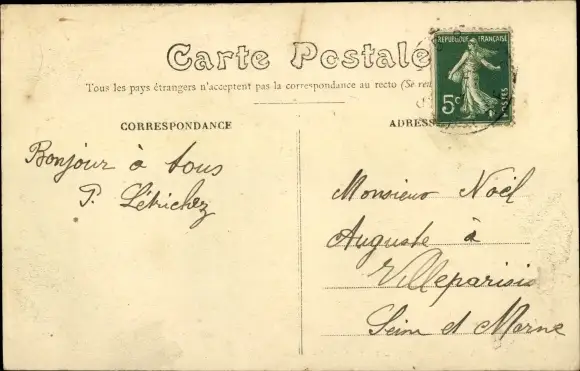 Carte Postale
Tous les pays étrangers n'acceptent pas la correspondance au recto (Se
REPUBLIQUE FRANÇAISE
5c
POSTES
CORRESPONDANCE
ADRESS
Bonjour à tous
P. Létrichez
Monsieur Noël
Auguste à
Villeparisis
Seine et Marne